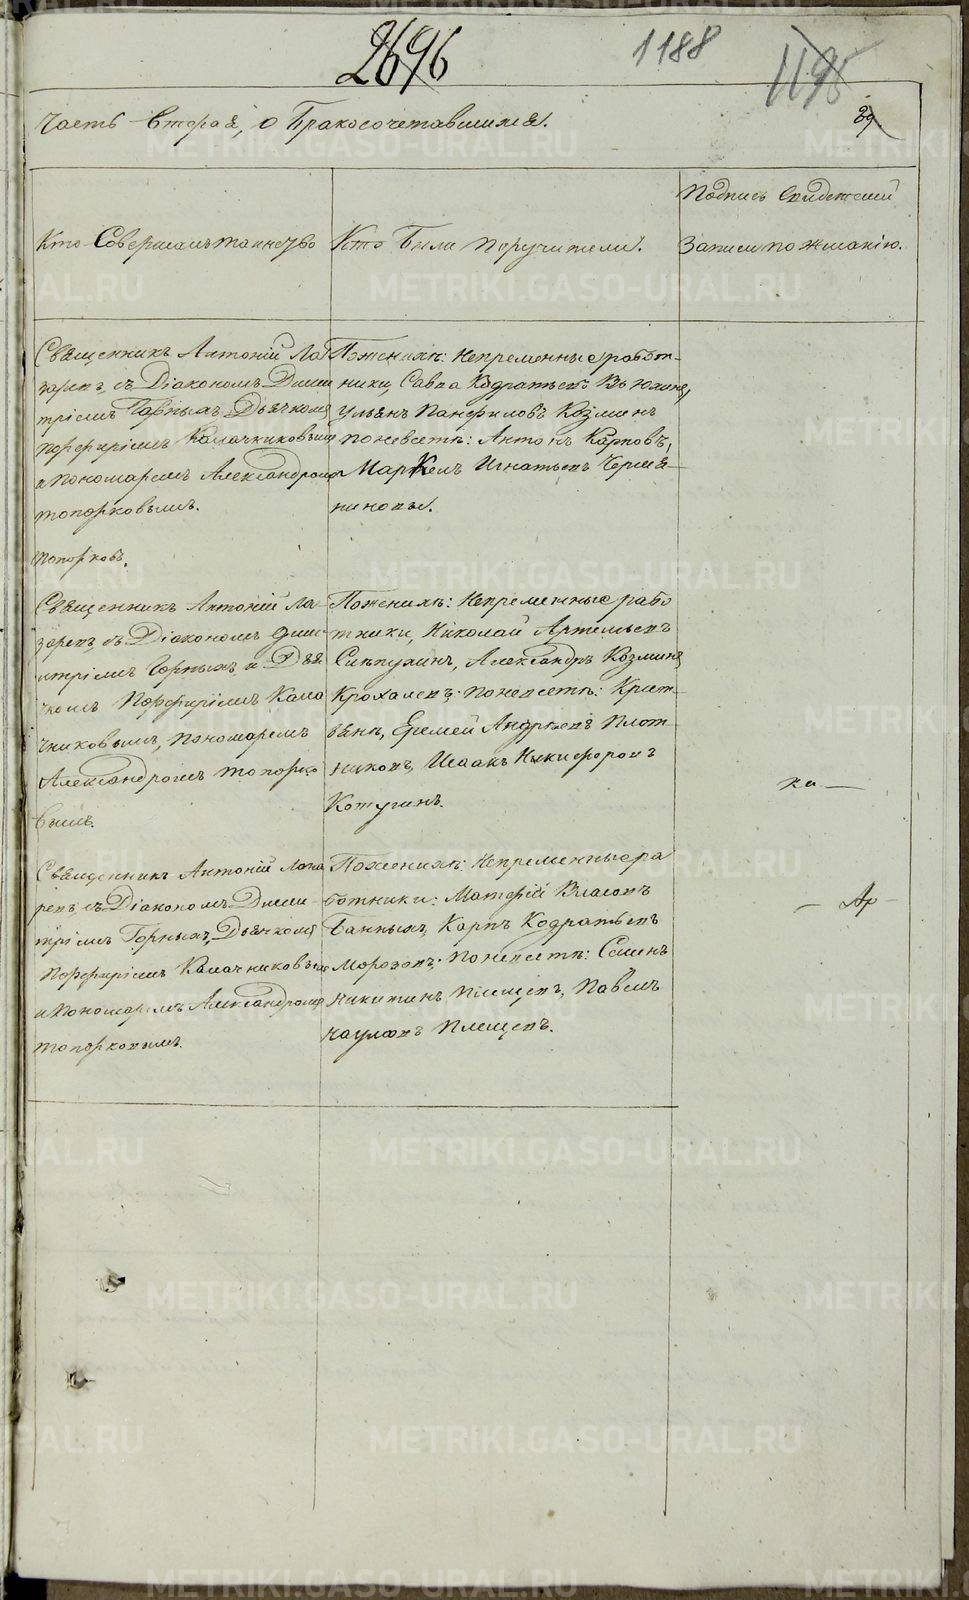 2696
1188
1195
Часть Вторая, о Бракосочетавшихся.
29
Кто Совершалъ таинство
Кто Были Поручители.
Подпись Свидетелей
Записи по желанію.
Священникъ Антоній Ла
заревъ, съ Діакономъ Дими
тріемъ Горныхъ, Дьячкомъ
Порфиріемъ Калачниковымъ
и Пономаремъ Александромъ
топорковымъ.
топорковъ.
По женихѣ: Непременные работ-
ники, Савва Кодратьевъ Вьюхинъ,
Ульянъ Панфиловъ Козминъ
по невестѣ: Антонъ Карповъ,
Маркелъ Игнатьевъ Черме-
ниновы.
Священникъ Антоній Ла-
заревъ съ Діакономъ Дими-
итріемъ Горныхъ и Дья
чкомъ Порфиріемъ Кала
чниковымъ, Пономаремъ
Александромъ топорко
вымъ.
По женихѣ: Непременные рабо
тники, Николай Артемьевъ
Сыпухинъ, Александръ Козминъ
Крохалевъ: По невестѣ: Крест-
ьянъ, Еремей Андреевъ Плот
никовъ, Исаакъ Никифоровъ
Котугинъ.
ка —
Священникъ Антоній Лаза
ревъ съ Діакономъ Дими-
тріемъ Горныхъ, Дьячкомъ
Порфиріемъ Калачниковымъ
и Пономаремъ Александромъ
топорковымъ.
По женихѣ: Непременные ра
ботники: Матфій Власовъ
Банныхъ, Карпъ Кодратьевъ
Морозовъ: По невестѣ: Семенъ
Никитинъ Плещевъ, Павелъ
Плещевъ.
— Ар —